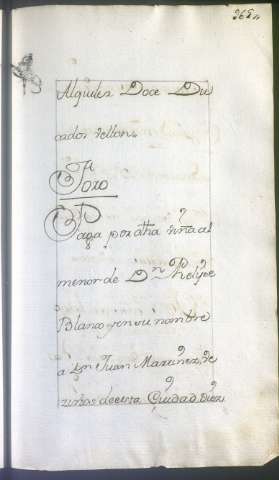 Alquiler Doce Du
cados vellon
Foro
Paga por dha viña al
menor de Dn Phelipe
Blanco, yensu nombre
a Dn Juan Martinez, ve
zinos de esta Ciudad, diez